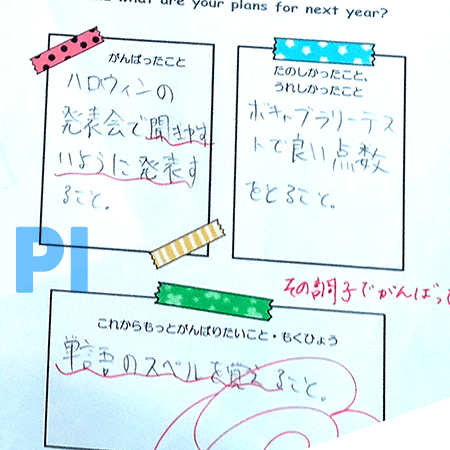 what are your plans for next year?
がんばったこと
ハロウィンの
発表会で聞きやす
いように発表す
ること。
たのしかったこと、
うれしかったこと
ボキャブラリーテス
トで良い点数
をとること。
PI
その調子でがんばって
これからもっとがんばりたいこと・もくひょう
単語のスペルを覚えること。